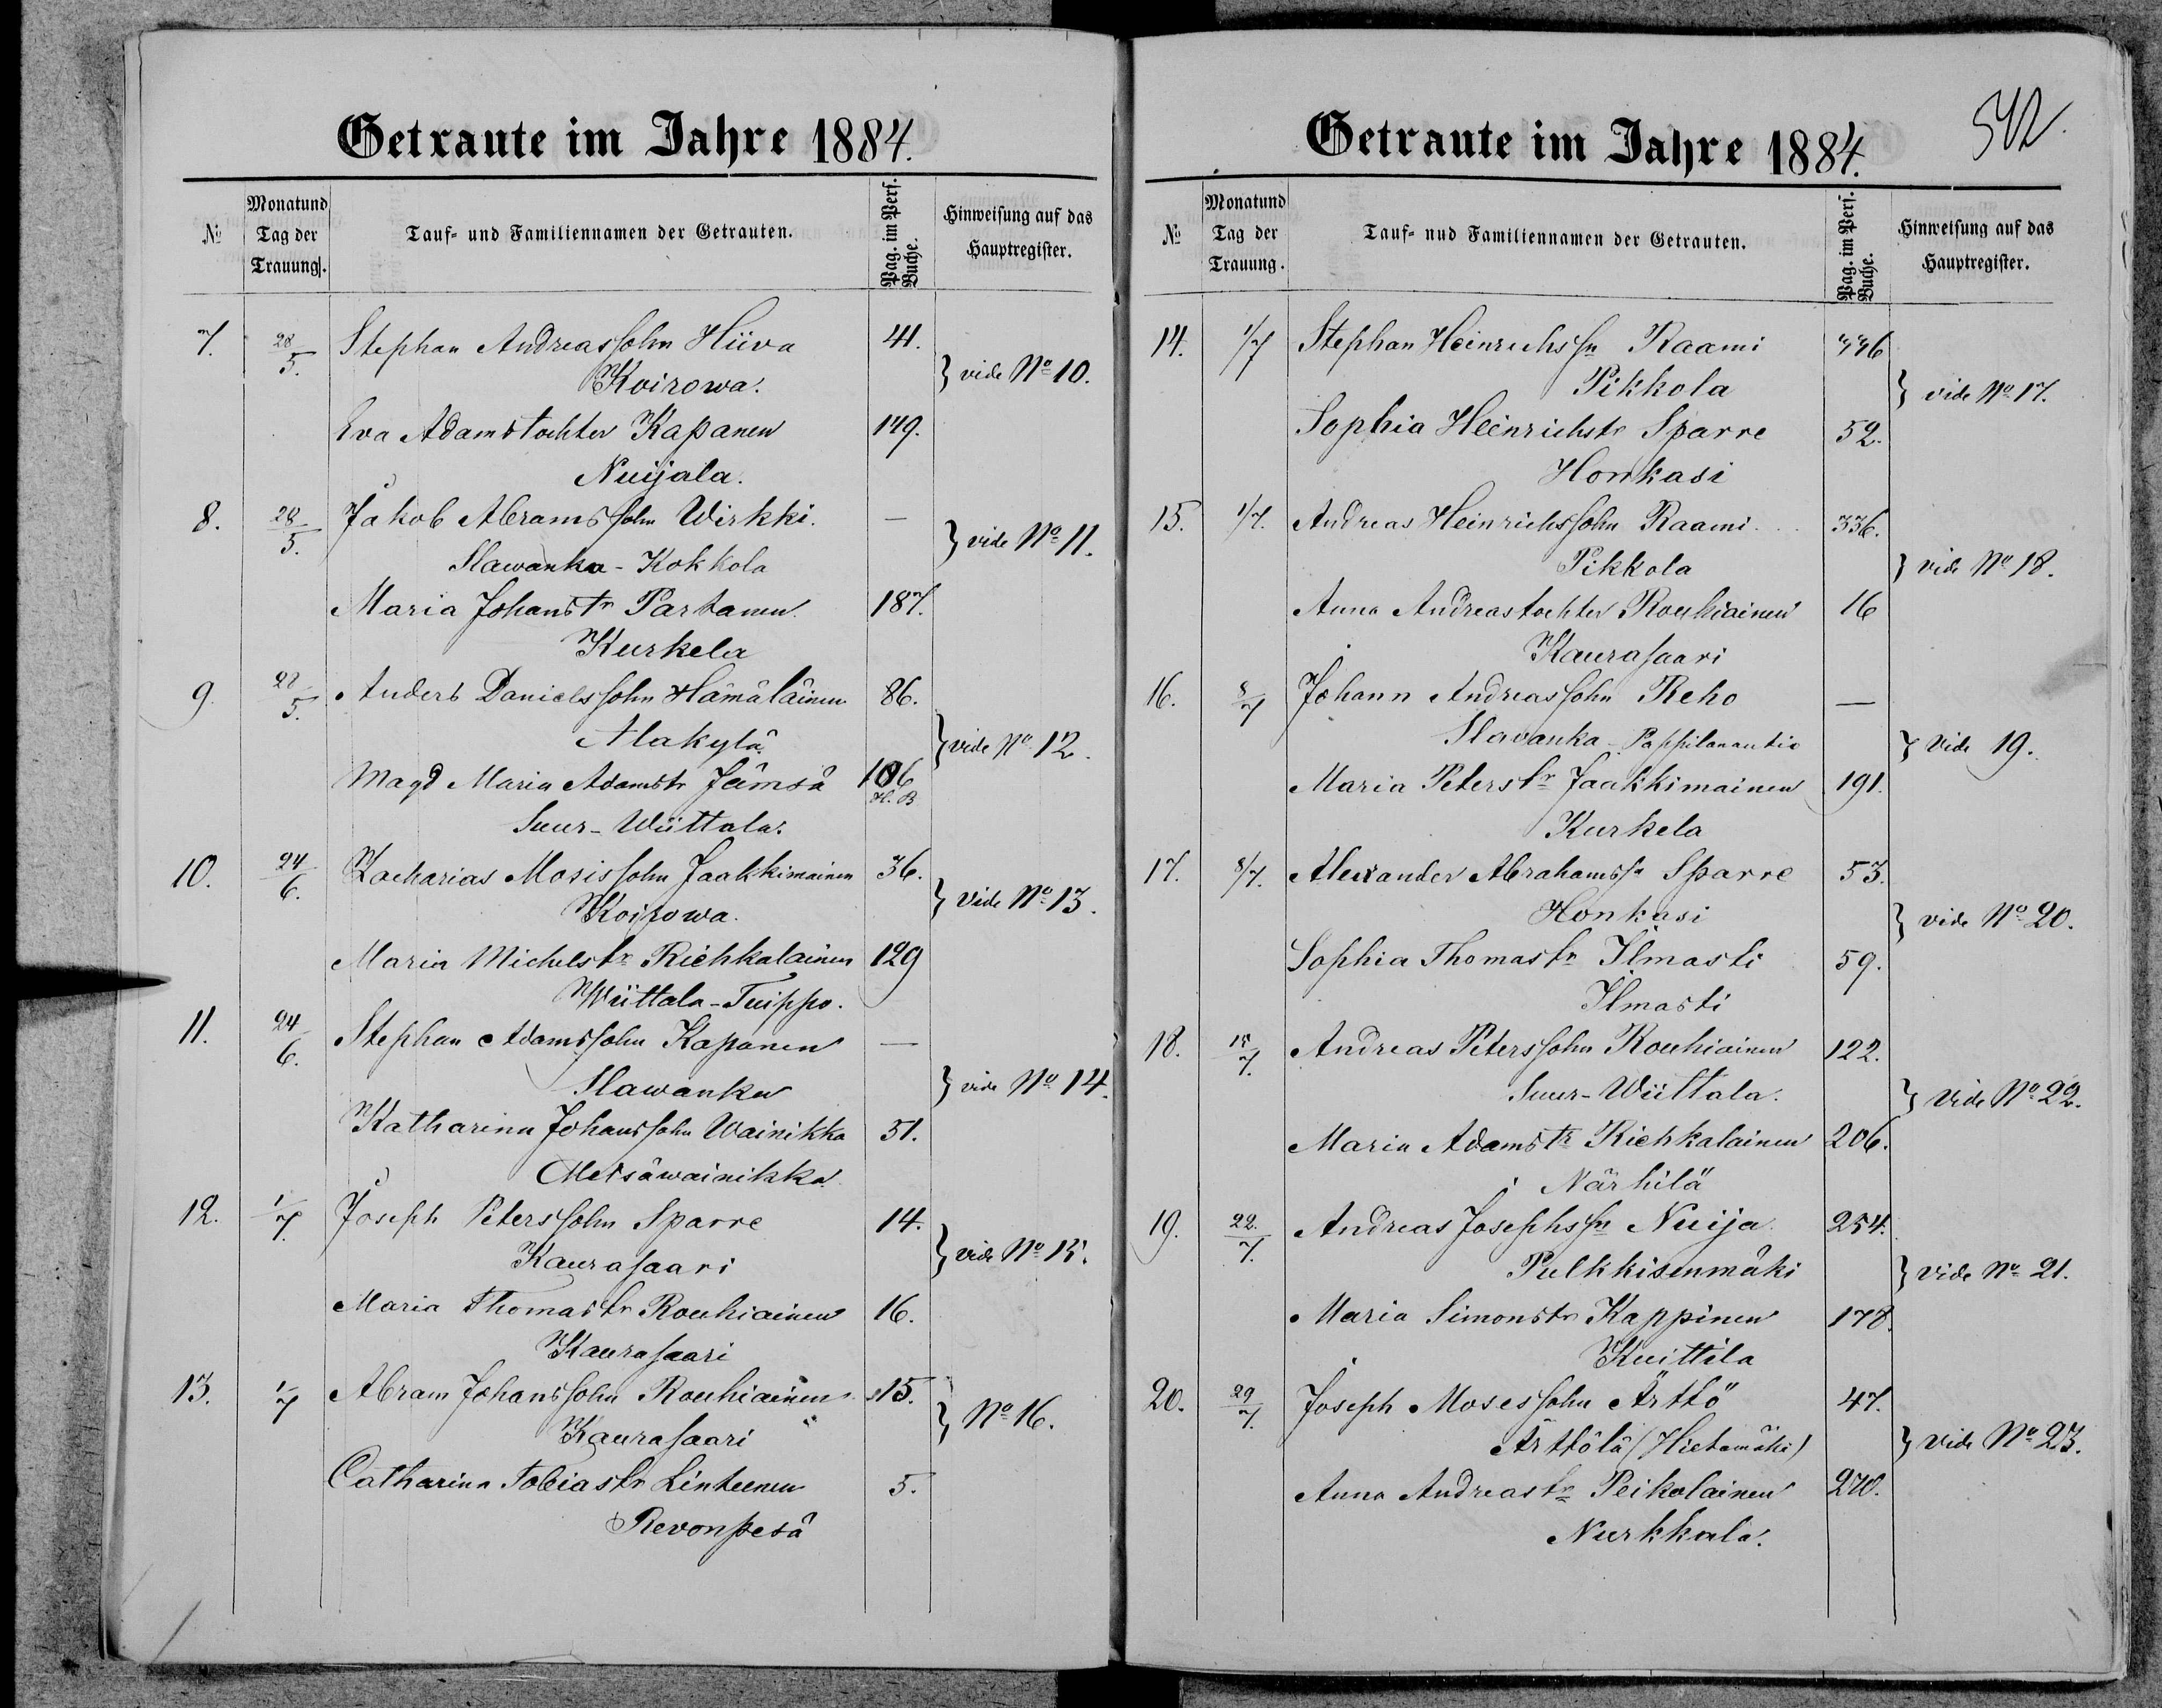 Getraute im Jahre 1884.
№ Monat und Tag der Trauung. Tauf- und Familiennamen der Getrauten. Pag. im Pers. Buche. Hinweisung auf das Hauptregister.
7. 28/5. Stephan Andreassohn Hiiva 41.
Koirowa. } vide No 10.
Eva Adamstochter Kapanen 149.
Nuijala.
8. 28/5. Jakob Abramssohn Wirkki. —
Slawanka - Kokkola } vide No 11.
Maria Johanstr Partanen. 187.
Kurkela
9. 28/5. Anders Danielssohn Hämäläinen 86.
Alakylä } vide No 12.
Magd Maria Adamstr Jämsä 106 H. B
Suur-Wiittala.
10. 24/6. Zacharias Mosissohn Jaakkimainen 36.
Koirowa. } vide No 13.
Maria Michelstr Riehkalainen 129
Wiittala-Tuippo.
11. 24/6. Stephan Adamssohn Kapanen —
Slawanka } vide No 14.
Katharina Johanssohn Wainikka 51.
Metsäwainikka
12. 1/7. Joseph Peterssohn Sparre 14.
Kaurasaari } vide No 15.
Maria Thomastr Rouhiainen 16.
Kaurasaari
13. 1/7 Abram Johanssohn Rouhiainen 15.
Kaurasaari } No 16.
Catharina Tobiastr Linteenen 5.
Revonpesä
542.
Getraute im Jahre 1884.
№ Monat und Tag der Trauung. Tauf- nud Familiennamen der Getrauten. Pag. im Pers. Buche. Hinweisung auf das Hauptregister.
14. 1/7 Stephan Heinrichssn Raami 336
Pikkola } vide No 17.
Sophia Heinrichstr Sparre 52.
Honkasi
15. 1/7. Andreas Heinrichssohn Raami 336.
Pikkola } vide No 18.
Anna Andreastochter Rouhiainen 16
Kaurasaari
16. 8/7 Johann Andreassohn Reho —
Slavanka - } vide 19.
Maria Peterstr Jaakkimainen 191.
Kurkela
17. 8/7. Alexander Abrahamssn Sparre 53.
Honkasi } vide No 20.
Sophia Thomastr Ilmasti 59.
Ilmasti
18. 15/7. Andreas Peterssohn Rouhiainen 122.
Suur-Wiittala. } vide No 22.
Maria Adamstr Riehkalainen 206.
Närhilä
19. 22./7. Andreas Josephssn Nuija 254.
Pulkkisenmäki } vide No 21.
Maria Simonstr Kappinen 178.
Kuittila
20. 29/7. Joseph Mosessohn Ärttö 47.
Ärttölä (Hietamäki) } vide No 23.
Anna Andreastr Peikolainen 270.
Nurkkala.